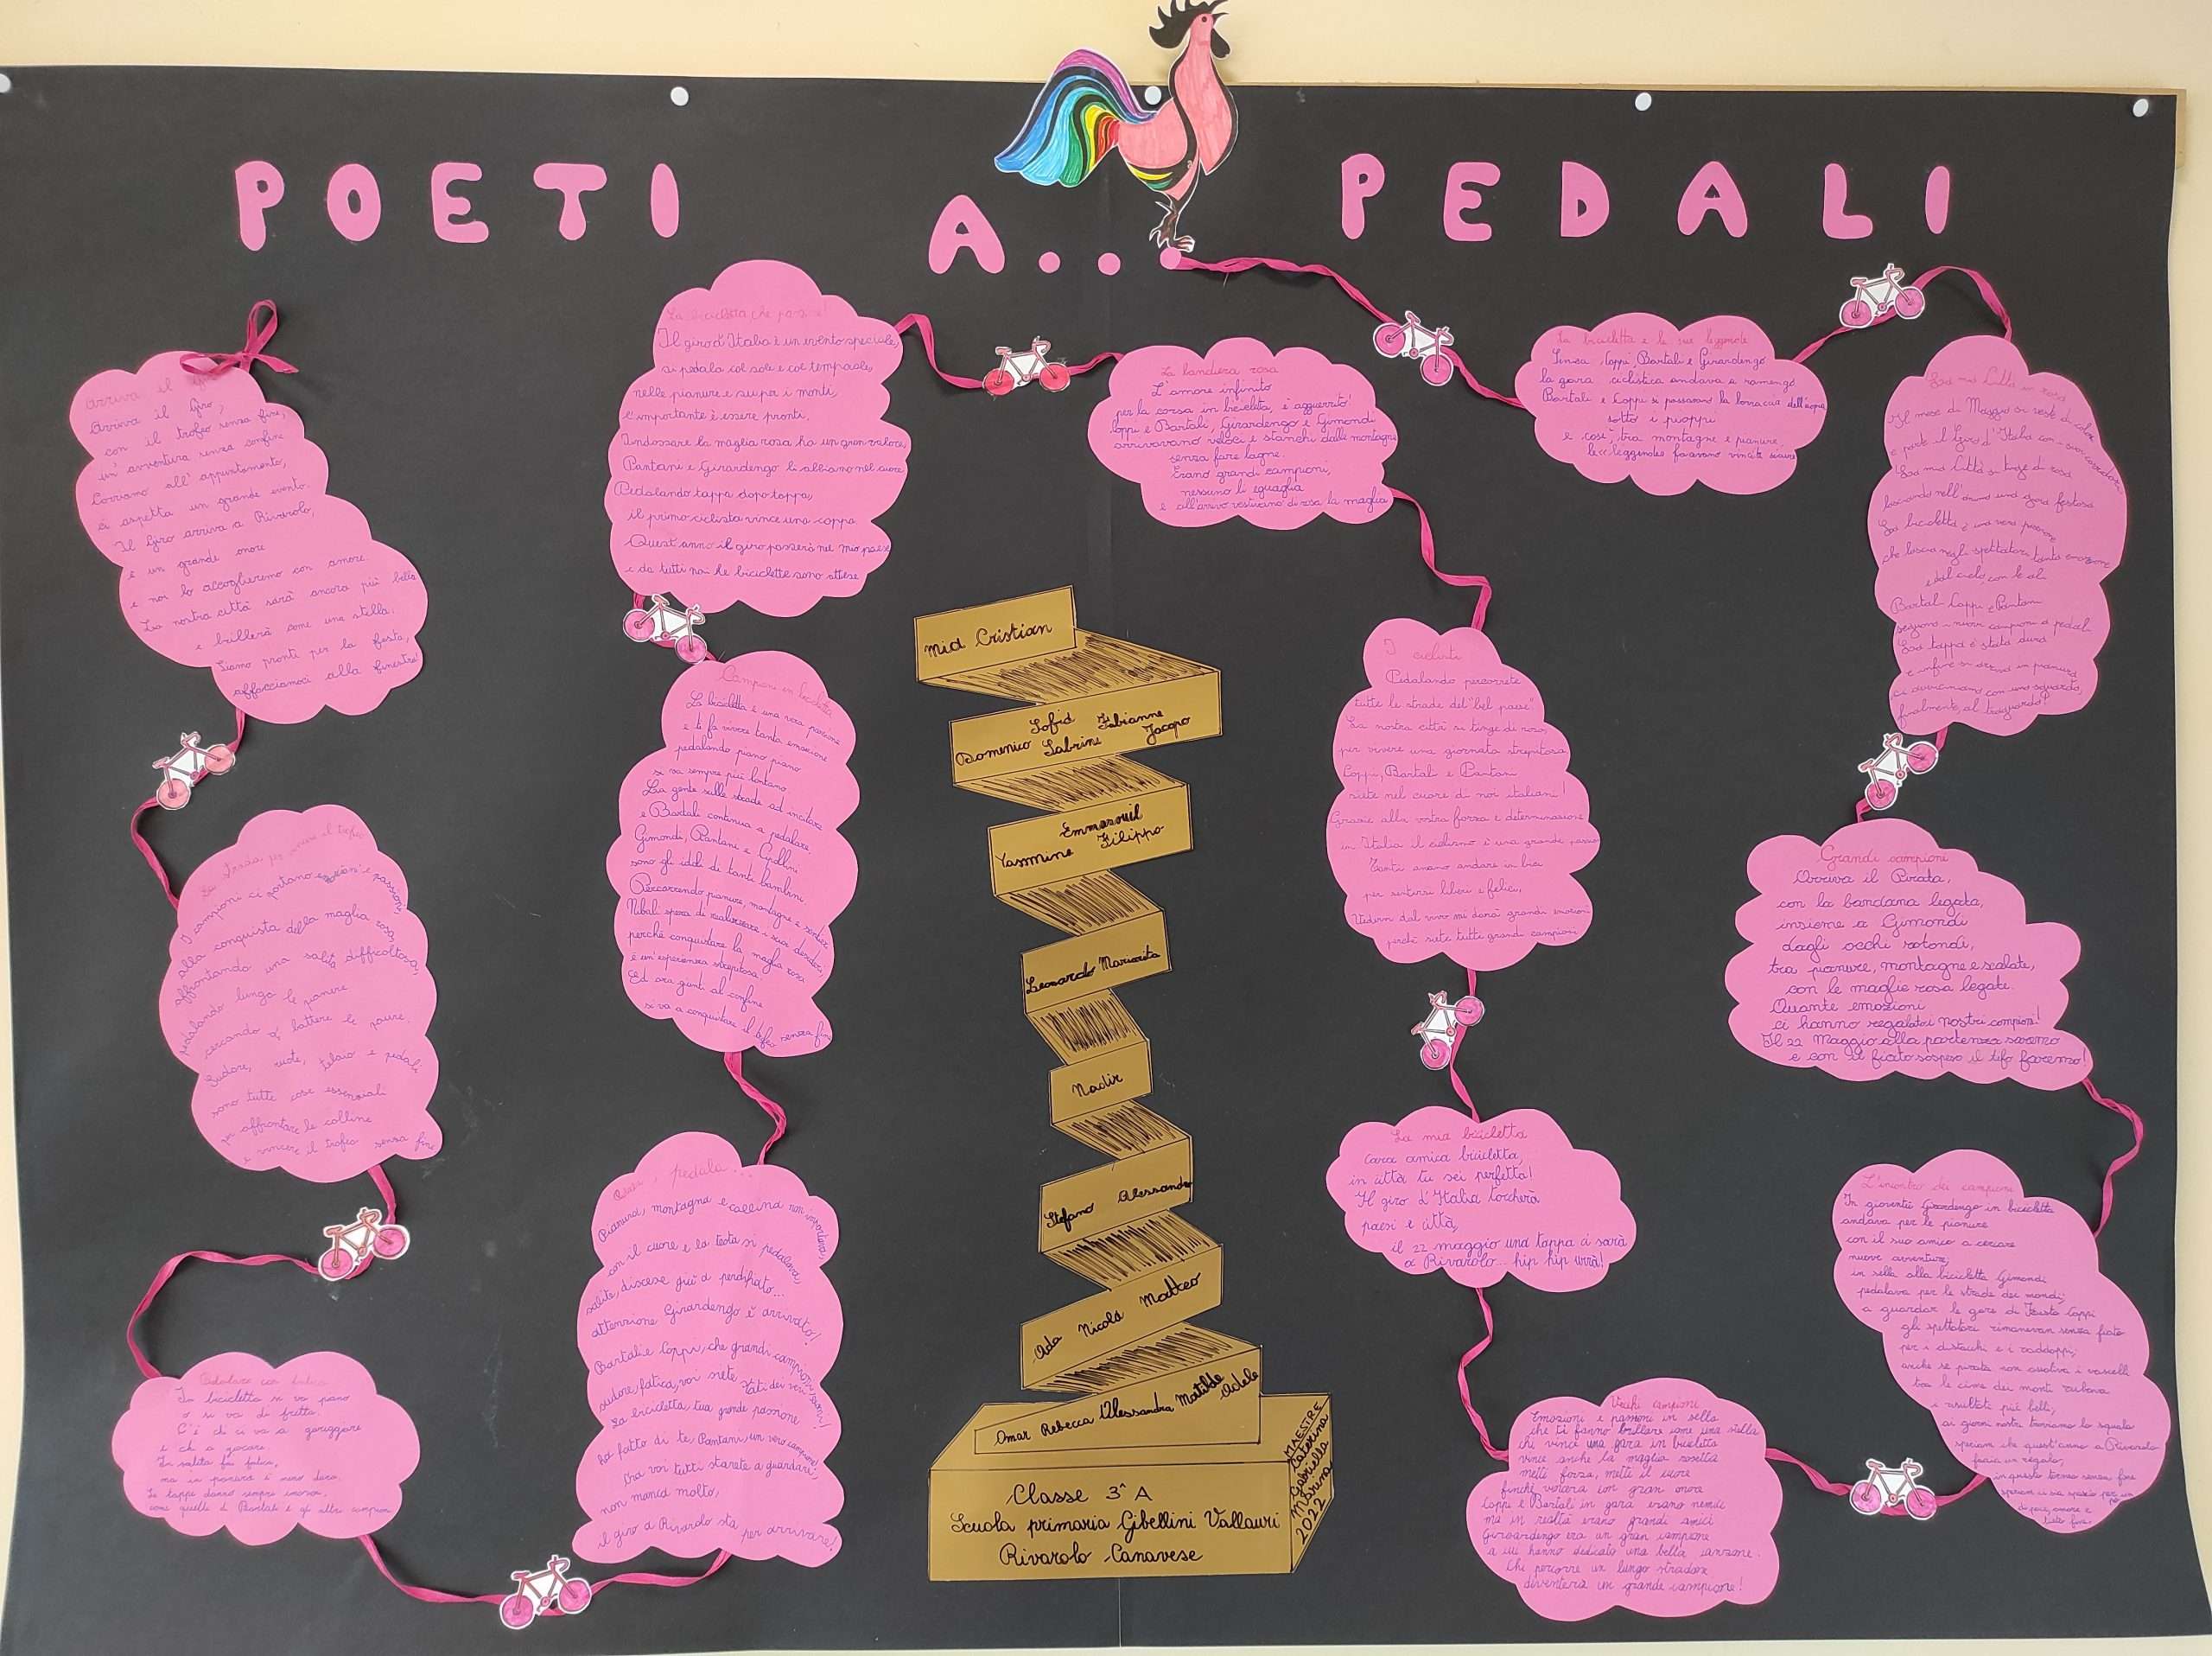 POETI A... PEDALI
Arriva il
Arriva il Giro,
con il trofeo senza fine,
un' avventura senza confine
Corriamo all' appuntamento,
ci aspetta un grande evento.
Il Giro arriva a Rivarolo,
è un grande onore
e noi lo accoglieremo con amore.
La nostra città sarà ancora più bella
e brillerà come una stella.
Siamo pronti per la festa,
affacciamoci alla finestra!
I campioni ci portano emozioni e passione,
alla conquista della maglia rosa,
affrontando una salita difficoltosa,
pedalando lungo le pianure
cercando di battere le paure.
Sudore, ruote, telaio e pedali
sono tutte cose essenziali
per affrontare le colline
e vincere il trofeo senza fine
Pedalare con fatica
In bicicletta si va piano
o si va di fretta.
C'è chi ci va a gareggiare
e chi a giocare.
In salita fai fatica,
ma in pianura è meno dura.
Le tappe danno sempre emozioni
come quelle di Bartali e gli altri campioni
La bicicletta che passione!
Il giro d'Italia è un evento speciale,
si pedala col sole e col temporale,
nelle pianure e super i monti,
l'importante è essere pronti.
Indossare la maglia rosa ha un gran valore,
Pantani e Girardengo li abbiamo nel cuore
Pedalando tappa dopo tappa,
il primo ciclista vince una coppa.
Quest'anno il giro passerà nel mio paese
e da tutti noi le biciclette sono attese
Campioni in bicicletta
La bicicletta è una vera passione
e ti fa vivere tanta emozione
pedalando piano piano
si va sempre più lontano
La gente sulle strade ad incitare
e Bartali continua a pedalare.
Gimondi, Pantani e Cipollini
sono gli idoli di tanti bambini
Percorrendo pianure, montagne e sentieri
Nibali spera di realizzare i suoi desideri,
perchè conquistare la maglia rosa
è un'esperienza strepitosa.
Ed ora giunti al confine
si va a conquistare il trofeo senza fine
pedala...
Pianura, montagna e collina non importava,
con il cuore e la testa si pedalava,
salite, discese giù a perdifiato...
attenzione Girardengo è arrivato!
Bartali e Coppi, che grandi campioni
sudore, fatica, voi siete stati dei veri
La bicicletta, tua grande passione
ha fatto di te, Pantani, un vero campione!
Ora voi tutti starete a guardare,
non manca molto,
il giro a Rivarolo sta per arrivare!
La bandiera rosa
L'amore infinito
per la corsa in bicicleta, è agguerrito!
Coppi e Bartali, Girardengo e Gimondi
arrivavano veloci e stanchi dalle montagne
senza fare lagne.
Erano grandi campioni,
nessuno li eguaglia
e all'arrivo vestivano di rosa la maglia
Mia Cristian
Sofia Fabianne
Domenico Sabrina Jacopo
Emmanuil
Yasmine Filippo
Leonardo Marianita
Nadir
Stefano Alessandro
Ada Nicolò Matteo
Omar Rebecca Alessandra Matilde Adele
Classe 3ª A
Scuola primaria Gibellini Vallauri
Rivarolo Canavese
MAESTRE
Caterina
Gabriella
Marina
2022
I ciclisti
Pedalando percorrete
tutte le strade del "bel paese"
La nostra città si tinge di rosa
per vivere una giornata strepitosa
Coppi, Bartali e Pantani
siete nel cuore di noi italiani!
Grazie alla vostra forza e determinazione
in Italia il ciclismo è una grande passione
Tanti amano andare in bici
per sentirsi liberi e felici,
Vedervi dal vivo mi darà grandi emozioni
perchè siete tutti grandi campioni
La mia bicicletta
Cara amica bicicletta,
in città tu sei perfetta!
Il giro d'Italia toccherà
paesi e città,
il 22 maggio una tappa ci sarà
a Rivarolo... hip hip urrà!
Vecchi campioni
Emozioni e passioni in sella
che ti fanno brillare come una stella
chi vince una gara in bicicletta
vince anche la maglia rosetta
metti forza, metti il cuore
finchè vincerai con gran onore
Coppi e Bartali in gara erano nemici
ma in realtà erano grandi amici
Girardengo era un gran campione
a cui hanno dedicato una bella canzone.
Chi percorre un lungo stradone
diventerà un grande campione!
La bicicletta e le sue leggende
Senza Coppi, Bartali e Girardengo
la gara ciclistica andava a ramengo
Bartali e Coppi si passarono la borraccia dell'acqua
sotto i pioppi
e così, tra montagne e pianure
le << leggende>> facevano vincite sicure
La mia Città in rosa
Il mese di Maggio si veste di colore
e parte il Giro d'Italia con
La mia Città si tinge di rosa
lasciando nell'animo una gioia festosa
La bicicletta è una vera passione
che lascia negli spettatori tanta emozione
Bartali Coppi e Pantani
seguono i nuovi campioni a pedali
La tappa è stata dura
e infine si arriva in pianura
ci avviciniamo con uno sguardo,
finalmente, al traguardo!
Grandi campioni
Arriva il Pirata,
con la bandana legata,
insieme a Gimondi
dagli occhi rotondi,
tra pianure, montagne e scalate,
con le maglie rosa legate.
Quante emozioni
ci hanno regalato i nostri campioni!
Il 22 Maggio alla partenza saremo
e con il fiato sospeso il tifo faremo!
L'incontro dei campioni
In gioventù Girardengo in bicicletta
andava per le pianure
con il suo amico a cercare
nuove avventure,
in sella alla bicicletta Gimondi
pedalava per le strade dei mondi,
a guardar le gare di Fausto Coppi
gli spettatori rimanevan senza fiato
per i distacchi e i raddoppi,
anche se pirata non assaliva i vascelli
tra le cime dei monti rubava
i risultati più belli,
ai giorni nostri troviamo lo squalo
speriam che quest'anno a Rivarolo
faccia un regalo,
in questo torneo senza fine